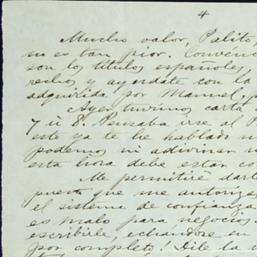 4
Mucho valor, Palito,
no es tan pior. Convénc
son los títulos españoles,
rechos y ayudate con la
adquirida por Manuel,
Ayer tuvimos carta
y a E. Pensaba irse al P
este ya te he hablado
podemos ni adivinar
esta hora debe estar co
Me permitiré dart
puesto que me autoriza
el sistema de confianza
es malo para negocios.
escribirle, echandose en
por completo! Dile la